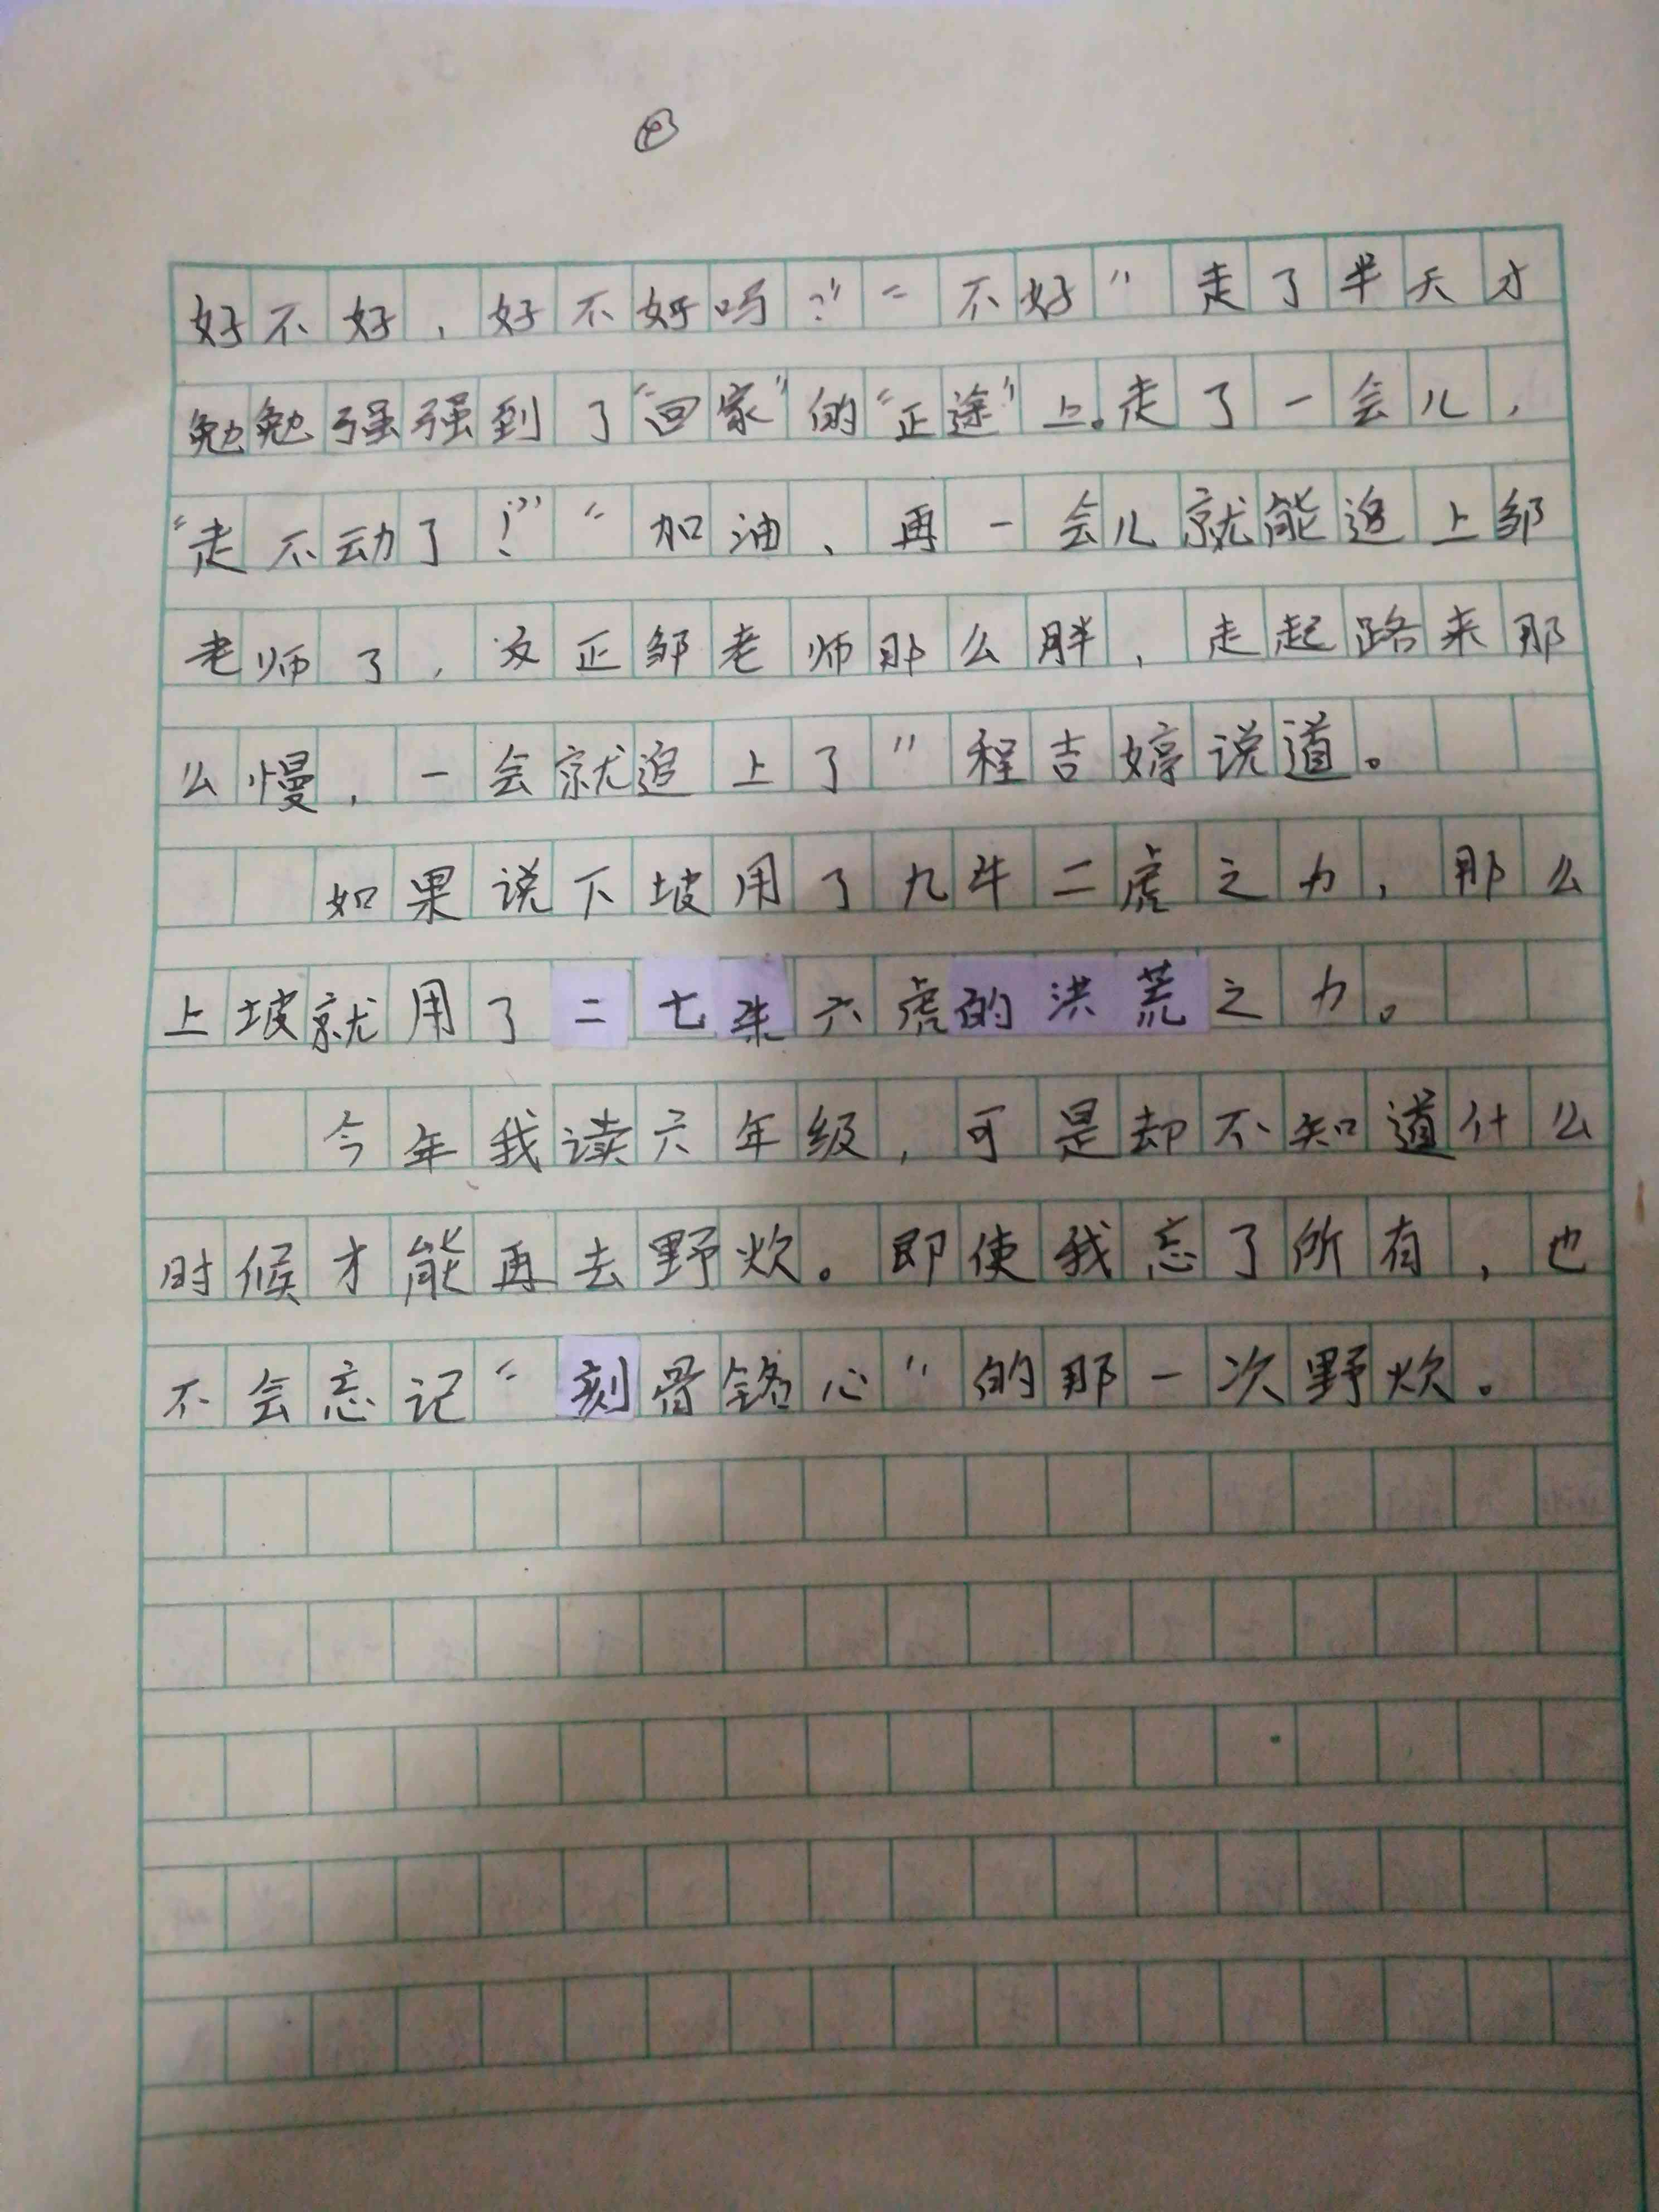 ④
好不好，好不好吗？”“不好”走了半天才
勉勉强强到了“回家”的“正途”上。走了一会儿，
“走不动了！”“加油、再一会儿就能追上邹
老师了，反正邹老师那么胖，走起路来那
么慢，一会就追上了”程吉婷说道。
如果说下坡用了九牛二虎之力，那么
上坡就用了二七牛六虎的洪荒之力。
今年我读六年级，可是却不知道什么
时候才能再去野炊。即使我忘了所有，也
不会忘记“刻骨铭心”的那一次野炊。